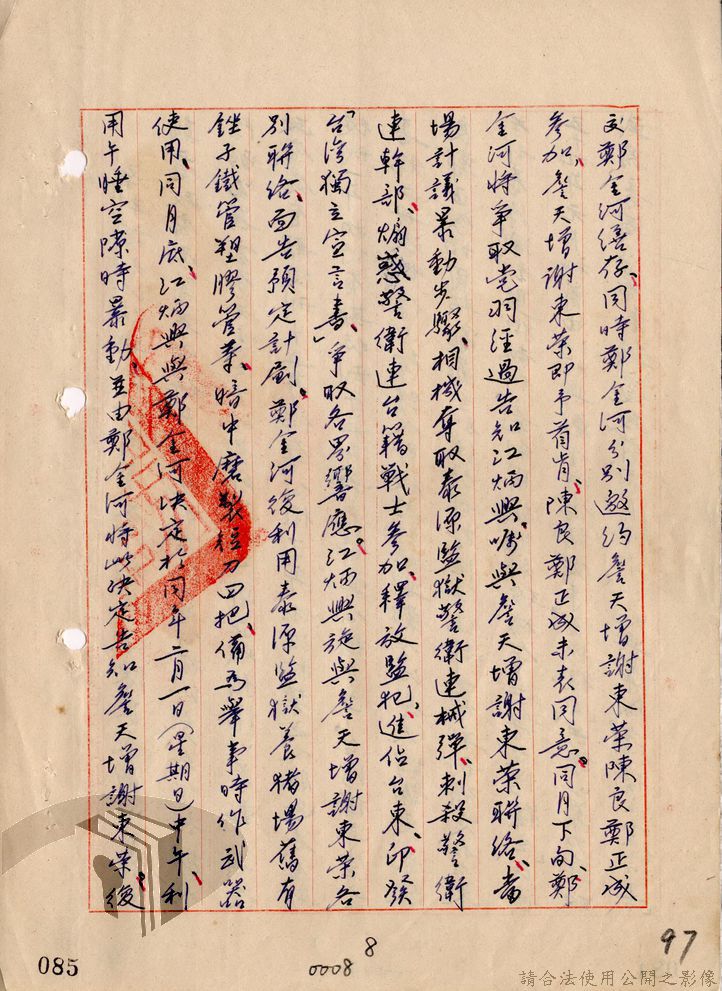 交鄭金河繕存、同時鄭金河分別邀約詹天增謝東榮陳良鄭正成
參加、詹天增謝東榮即予首肯、陳良鄭正成未表同意。同月下旬、鄭
金河將爭取党羽經過告知江炳興、囑與詹天增謝東榮聯絡、當
場計議暴動步驟、相機奪取泰源監獄警衛連械彈、刺殺警衛
連幹部、煽惑警衛連台籍戰士參加、釋放監犯、進佔台東、印發
「台灣獨立宣言書」、爭取各界響應、江炳興旋與詹天增謝東榮各
別聯絡、面告預定計劃。鄭金河復利用泰源監獄養猪場舊有
銼子鐵管塑膠管等、暗中磨製短刀四把、備為舉事時作武器
使用、同月底、江炳興與鄭金河決定於同年二月一日(星期日)中午、利
用午睡空隙時暴動、並由鄭金河將此決定告知詹天增謝東榮。復
085
0008
8
97
請合法使用公開之影像